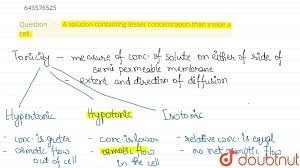 643576525
Question : - A solution containing lesser concentration than inside a cell.
Tonicity - measure of conc. of solute on either of side of semi permeable membrane
- extent and direction of diffusion
Hypertonic Hypotonic Isotonic
- conc. is greter - conc. is lower - relative conc. is equal
- osmotic flow out of cell - osmotic flow in the cell - no net osmotic flow
doubtnut